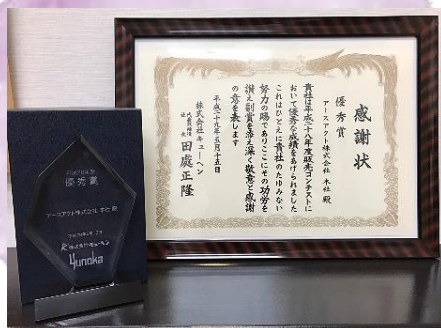 感謝状
優秀賞
アースアクト株式会社 本社 殿
貴社は平成二十八年度販売コンテストに
おいて優秀な成績をあげられました
これはひとえに貴社のたゆみない
努力の賜でありここにその功労を
讃え副賞を添え深く敬意と感謝
の意を表します
平成二十九年五月十五日
株式会社キューヘン
代表取締役
社長
田處正隆
優秀賞
アースアクト株式会社 本社 殿
株式会社キューヘン
Yunoka